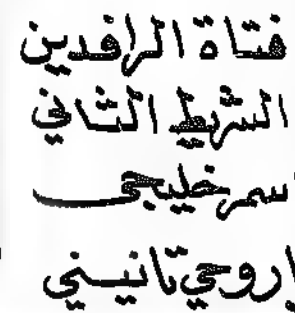 فتاة الرافدين
الشريط الثاني
سمر خليجى
اروحي تانيني